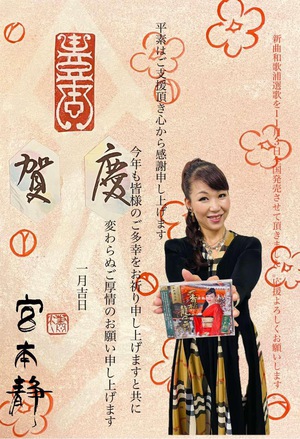 慶
賀
新曲和歌浦選歌を
全国発売させて頂きま
応援よろしくお願いします
平素はご支援頂き心から感謝申し上げます
今年も皆様のご多幸をお祈り申し上げますと共に
変わらぬご厚情のお願い申し上げます
一月吉日
宮本静